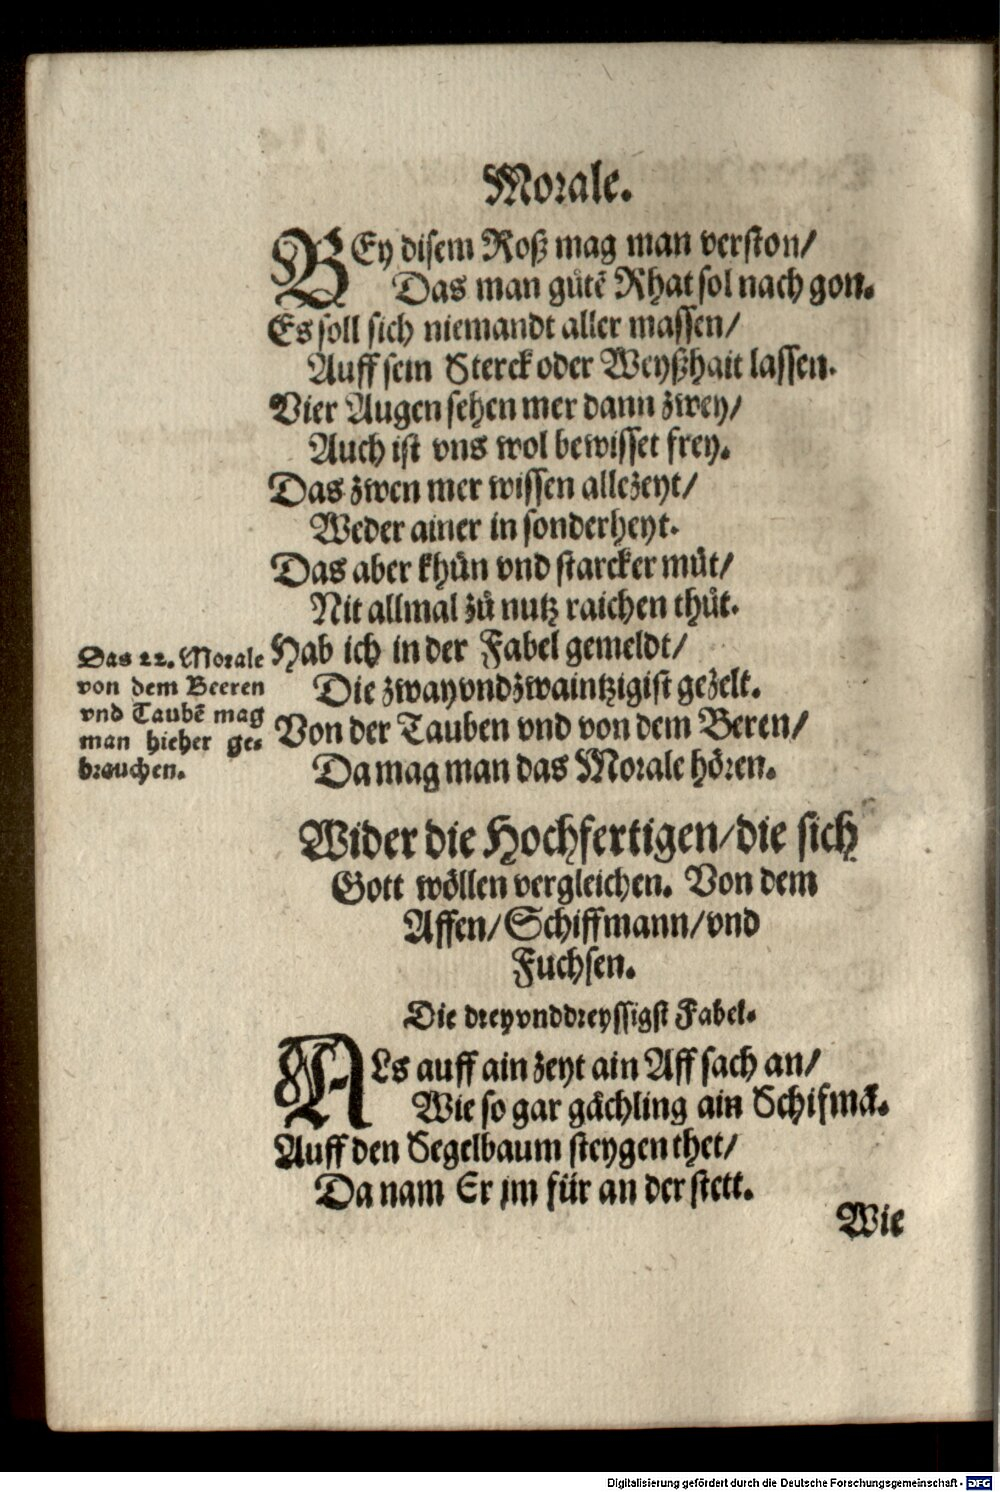 Morale.
BEy disem Roß mag man verston/
Das man gůtẽ Rhat sol nach gon.
Es soll sich niemandt aller massen/
Auff sein Sterck oder Weyßhait lassen.
Vier Augen sehen mer dann zwey/
Auch ist vns wol bewisset frey.
Das zwen mer wissen allezeyt/
Weder ainer in sonderheyt.
Das aber khün vnd starcker můt/
Nit allmal zů nutz raichen thůt.
Hab ich in der Fabel gemeldt/
Die zwayvndzwaintzigist gezelt.
Von der Tauben vnd von dem Beren/
Da mag man das Morale hören.
Das 22. Morale
von dem Beeren
vnd Taubẽ mag
man hieher ge-
brauchen.
Wider die Hochfertigen/die sich
Gott wöllen vergleichen. Von dem
Affen/Schiffmann/vnd
Fuchsen.
Die dreyvnddreyssigst Fabel.
ALs auff ain zeyt ain Aff sach an/
Wie so gar gächling ain Schifmã.
Auff den Segelbaum steygen thet/
Da nam Er jm für an der stett.
Wie
Digitalisierung gefördert durch die Deutsche Forschungsgemeinschaft - DFG